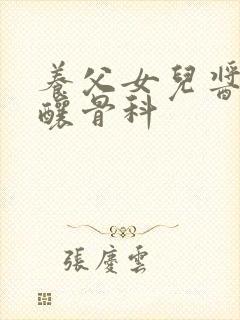 養父女兒醬
釀骨科
張慶雲